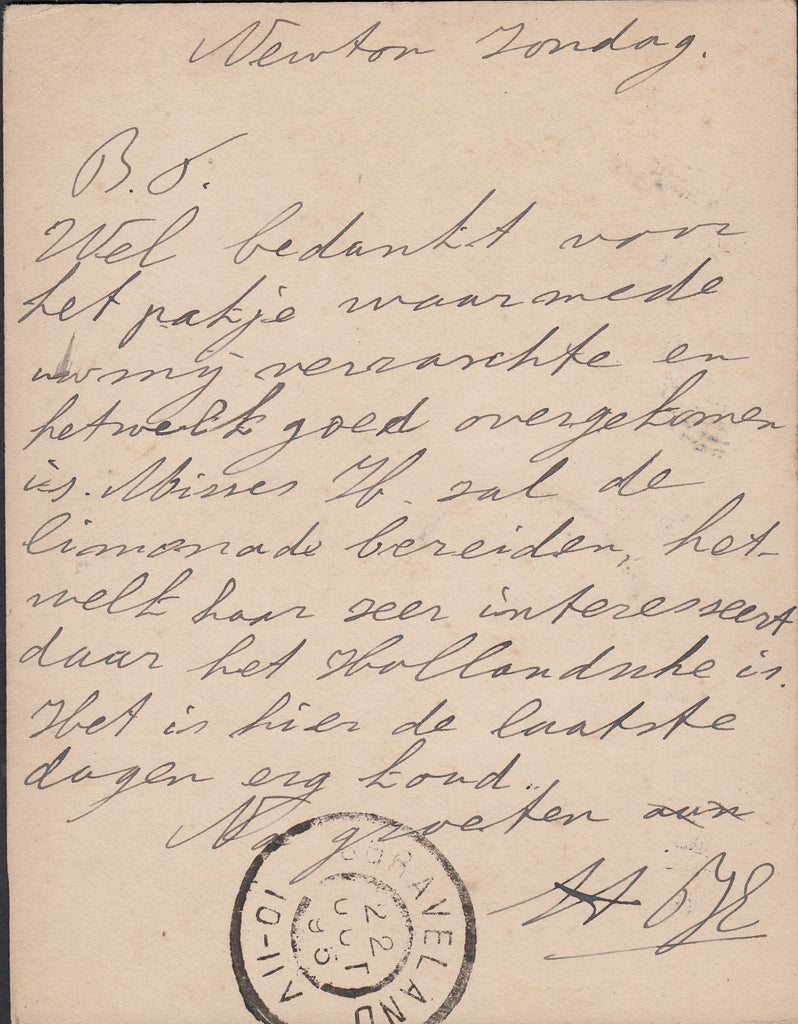 Newton Zondag.
B. V.
Wel bedankt voor
het pakje waarmede
uw mij verrasschte en
hetwelk goed overgekomen
is. Misses H. zal de
limonade bereiden, het-
welk haar zeer interesseert
daar het Hollandsche is.
Het is hier de laatste
dagen erg koud.
Na groeten aan
'S GRAVELAND
22 OCT 95
10-11V